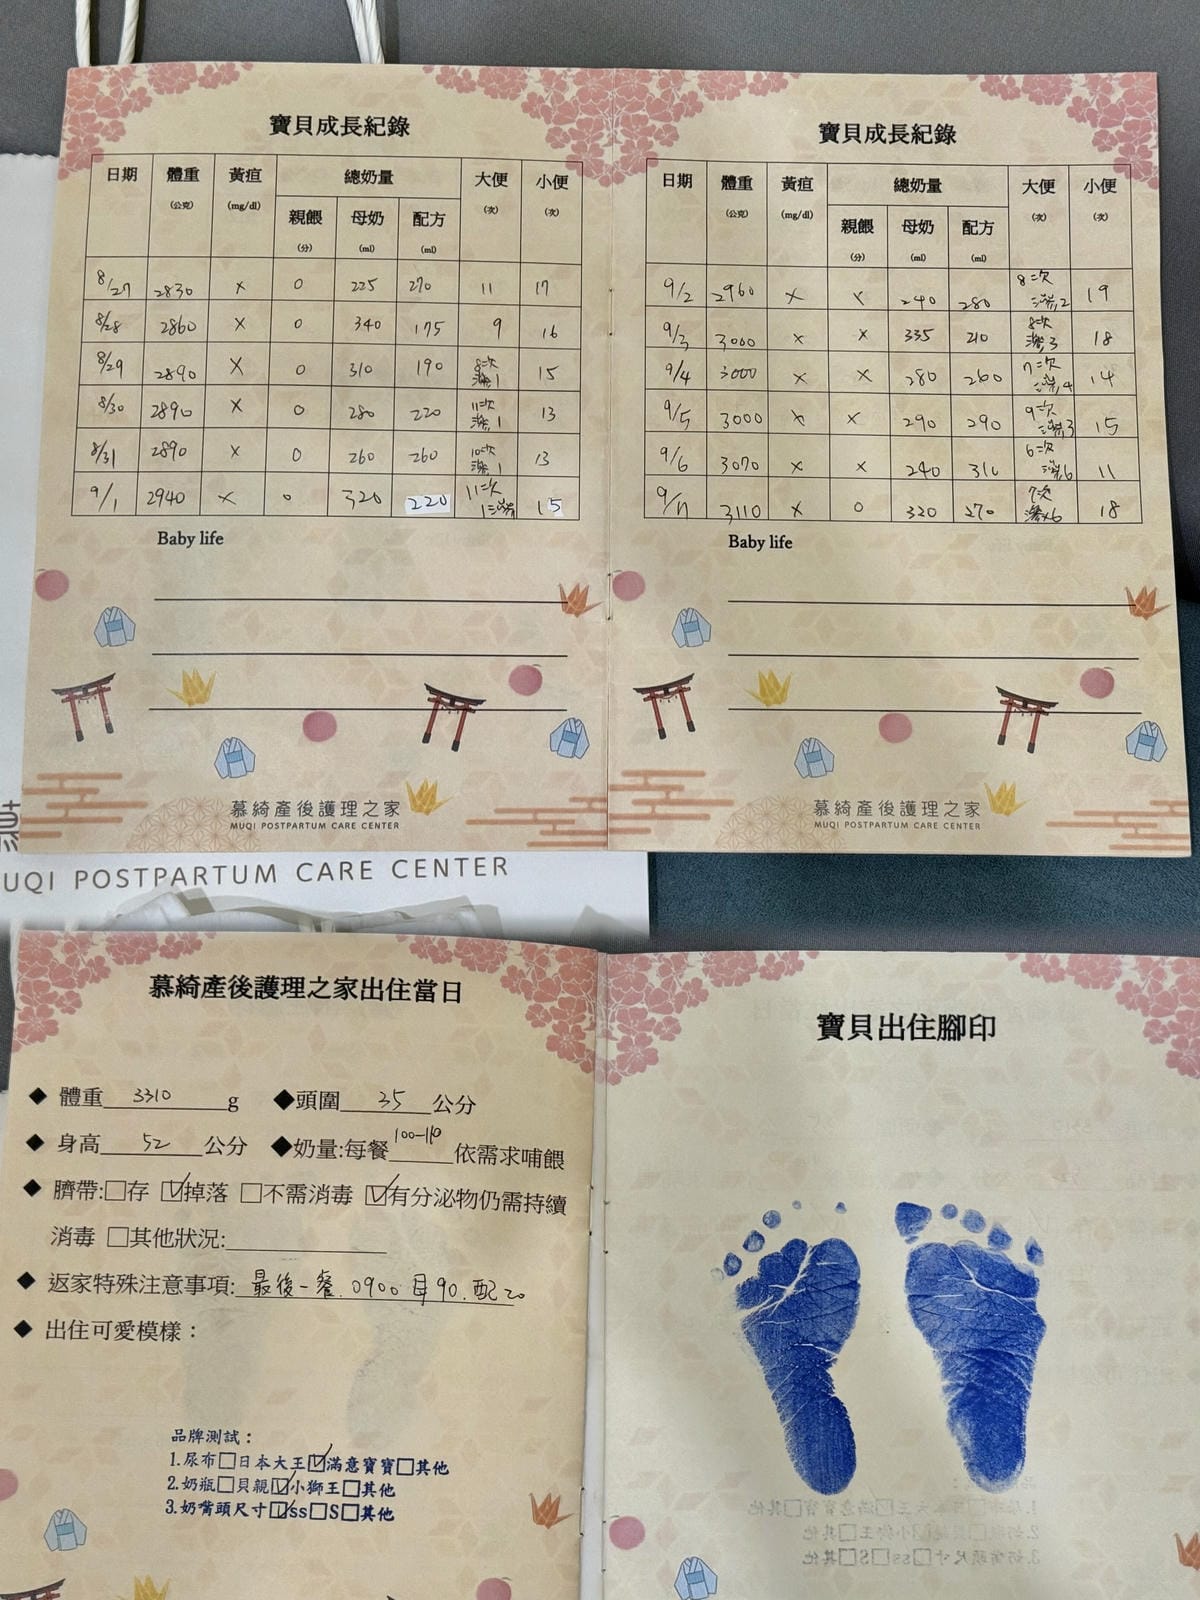 寶貝成長紀錄
日期 體重 黃疸 總奶量 大便 小便
(公克) (mg/dl) (次) (次)
親餵 母奶 配方
(分) (ml) (ml)
8/27 2830 x 0 225 270 11 17
8/28 2860 x 0 340 175 9 16
8/29 2890 x 0 310 190 8次 15
8/30 2890 x 0 280 220 11次 13
8/31 2890 x 0 260 260 10次 13
9/1 2940 x 0 320 220 11次 15
Baby life
慕綺產後護理之家
MUQI POSTPARTUM CARE CENTER
寶貝成長紀錄
日期 體重 黃疸 總奶量 大便 小便
(公克) (mg/dl) (次) (次)
親餵 母奶 配方
(分) (ml) (ml)
9/2 2960 x x 240 280 8次 19
9/3 3060 x x 335 210 8次 18
9/4 3000 x x 280 260 7次 14
9/5 3000 x x 290 290 9次 15
9/6 3070 x x 240 310 6次 11
9/7 3110 x 0 320 270 7次 18
Baby life
慕綺產後護理之家
MUQI POSTPARTUM CARE CENTER
UQI POSTPARTUM CARE CENTER
慕綺產後護理之家出住當日
◆ 體重 3310 g ◆頭圍 35 公分
◆ 身高 52 公分 ◆奶量:每餐 100-110 依需求哺餵
◆ 臍帶:□存 ☑掉落 □不需消毒 ☑有分泌物仍需持續
消毒 □其他狀況:
◆ 返家特殊注意事項: 最後一餐.0900 母90.配20
◆ 出住可愛模樣：
品牌測試：
1.尿布□日本大王☑滿意寶寶□其他
2.奶瓶□貝親☑小獅王□其他
3.奶嘴頭尺寸☑ss□S□其他
寶貝出住腳印